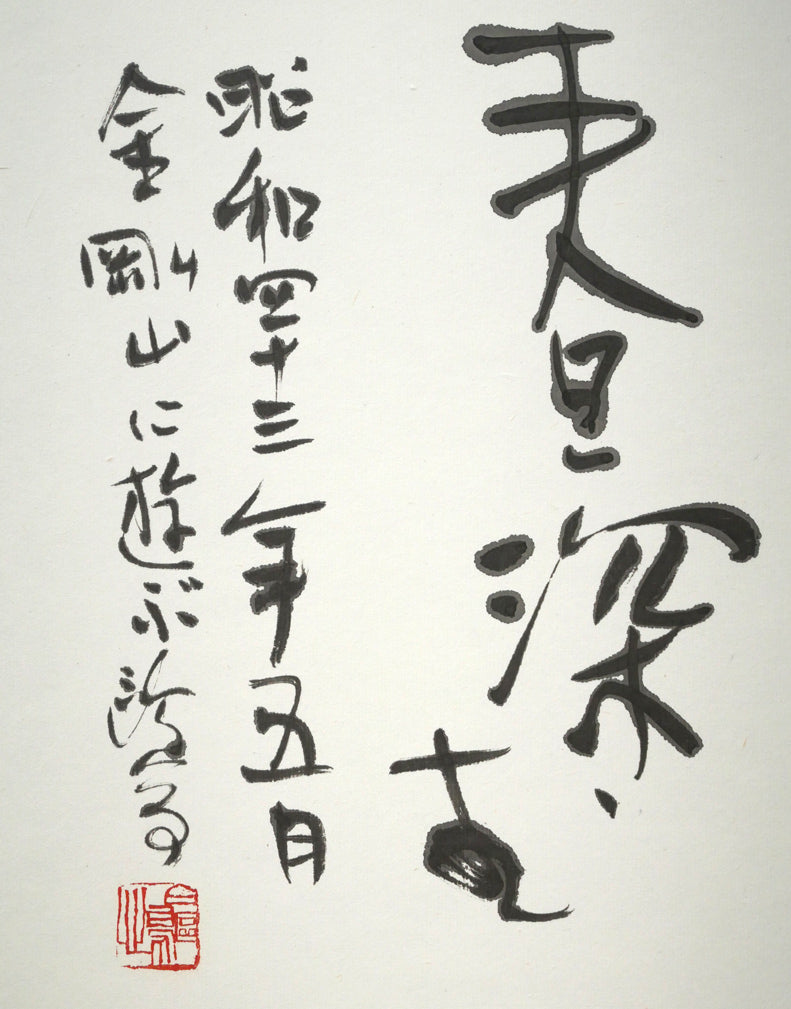 春深
昭和四十三年五月
金剛山に遊ぶ